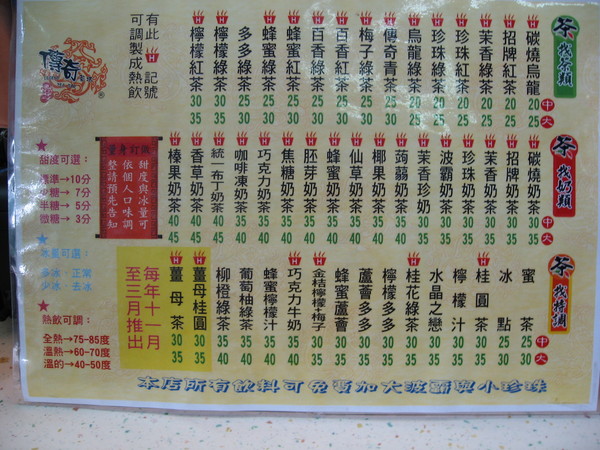 傳奇
有此 記號
可調製成熱飲
茶 找茶類 中 大
碳燒烏龍 20 25
招牌紅茶 20 25
茉香綠茶 20 25
珍珠紅茶 20 25
珍珠綠茶 20 25
烏龍綠茶 20 25
傳奇青茶 25 30
梅子綠茶 30 35
百香紅茶 25 30
百香綠茶 25 30
蜂蜜紅茶 25 30
蜂蜜綠茶 25 30
多多綠茶 25 30
檸檬綠茶 30 35
檸檬紅茶 30 35
茶 找奶類 中 大
碳燒奶茶 25 30
招牌奶茶 25 30
茉香奶茶 25 30
珍珠奶茶 25 30
波霸奶茶 25 30
茉香珍奶 30 35
蒟蒻奶茶 30 35
椰果奶茶 30 35
仙草奶茶 30 35
蜂蜜奶茶 30 35
胚芽奶茶 30 35
焦糖奶茶 30 35
巧克力奶茶 35 40
咖啡凍奶茶 35 40
統一布丁奶茶 40 45
香草奶茶 40 45
榛果奶茶 40 45
量身訂做
甜度與冰量可
依個人口味調
整請預先告知
★
甜度可選：
標準→10分
少糖→7分
半糖→5分
微糖→3分
★
冰量可選：
多冰 正常
少冰 去冰
★
熱飲可調：
全熱→75-85度
溫熱→60-70度
溫的→40-50度
茶 找特調 中 大
蜜茶 25 30
冰點 25 30
桂圓茶 30 35
檸檬汁 30 35
水晶之戀 30 35
桂花綠茶 30 35
檸檬多多 35 40
蘆薈多多 35 40
蜂蜜蘆薈 35 40
金桔檸檬+梅子 30 35
巧克力牛奶 35 40
蜂蜜檸檬汁 35 40
葡萄柚綠茶 35 40
柳橙綠茶 35 40
薑母桂圓 30 35
薑母茶 30 35
每年十一月
至三月推出
本店所有飲料可免費加大波霸與小珍珠